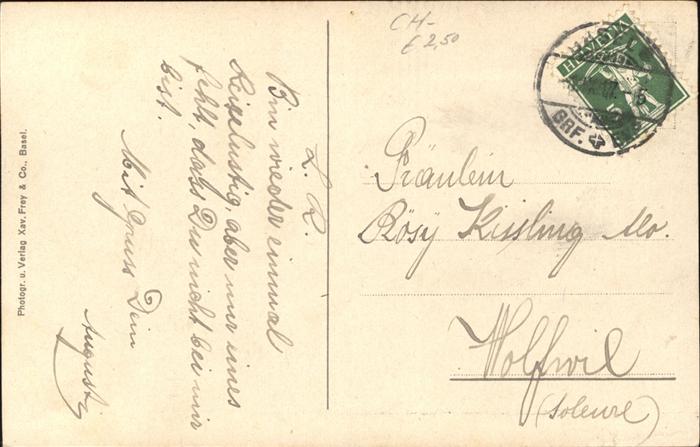 CH-
€ 2,50
HELVETIA
BRF.
L. R.
Bin wieder einmal
Reiselustig, aber nur eines
fehlt, dass Du nicht bei mir
bist.
Mit Gruss Dein
August
Fräulein
Rösy Kissling Mo.
Wolfwil
(Soleure)
Photogr. u. Verlag Xav. Frey & Co., Basel.